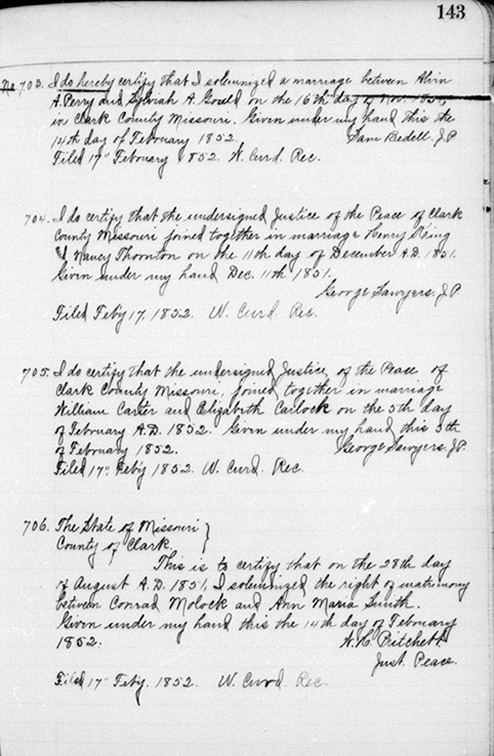 143
No 703. I do hereby certify that I solemnized a marriage between Alvin
A. Perry and Sylviah A. Gould on the 16th day of Nov. 1851,
in Clark County Missouri. Given under my hand this the
14th day of February 1852. Sam Bedell. J.P
Filed 17" February 1852. W. Curd. Rec.
704. I do certify that the undersigned Justice of the Peace of Clark
County Missouri joined together in marriage Henry King
& Nancy Thornton on the 11th day of December A.D. 1851.
Given under my hand Dec. 11th 1851.
George Sawyers. J.P
Filed Feb'y 17, 1852. W. Curd Rec.
705. I do certify that the undersigned Justice, of the Peace of
Clark County Missouri, joined together in marriage
William Carter and Elizabeth Carlock on the 5th day
of February A.D. 1852. Given under my hand this 5th
of February 1852. George Sawyers. J.P.
Filed 17" Feb'y 1852. W. Curd. Rec.
706. The State of Missouri }
County of Clark
This is to certify that on the 28th day
of August A.D. 1851, I solemnized the right of matrimony
between Conrad Molock and Ann Maria Smith.
Given under my hand this the 14th day of February
1852. A. C. Pritchett
Just. Peace.
Filed 17" Feb'y. 1852. W. Curd. Rec.